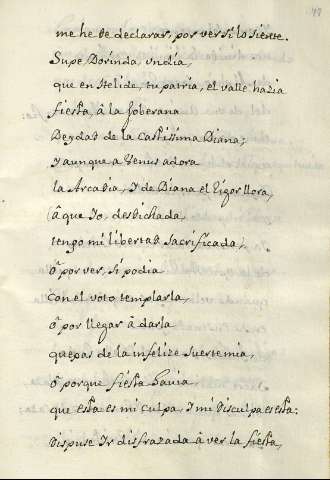 me he de declarar, por ver si lo siente.
Supe Dorinda, vn dia,
que en Helide, tu patria, el valle hazia
fiesta, â la soberana
Deydad de la Castissima Diana;
y aunque a Venus adora
la Arcadia, Y de Diana el Rigor llora,
(â que Yo, desdichada,
tengo mi libertad sacrificada,)
ô por ver, si podia
con el voto templarla,
ô por llegar â darla
quejas de la infelize suerte mia,
ô porque fiesta hauia,
que esta es mi culpa, Y mi Disculpa es esta:
Dispuse Ir disfrazada â ver la fiesta,